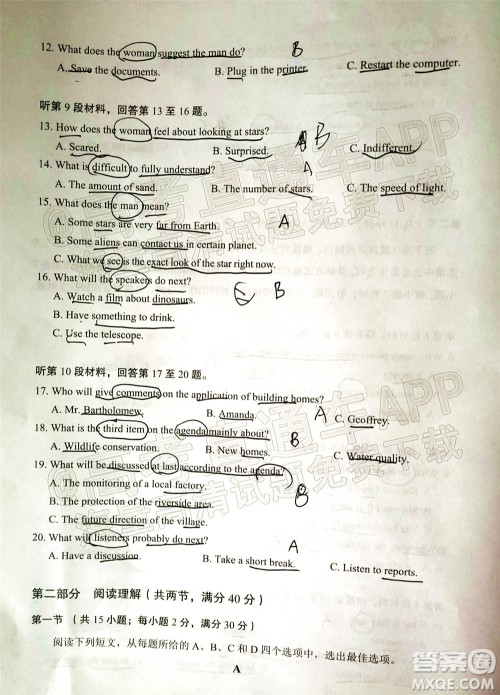 12. What does the woman suggest the man do? B
A. Save the documents. B. Plug in the printer. C. Restart the computer.
听第 9 段材料，回答第 13 至 16 题。
13. How does the woman feel about looking at stars? A B
A. Scared. B. Surprised. C. Indifferent.
14. What is difficult to fully understand? B
A. The amount of sand. B. The number of stars. C. The speed of light.
15. What does the man mean? A
A. Some stars are very far from Earth.
B. Some aliens can contact us in certain planet.
C. What we see is the exact look of the star right now.
16. What will the speakers do next? C B
A. Watch a film about dinosaurs.
B. Have something to drink.
C. Use the telescope.
听第 10 段材料，回答第 17 至 20 题。
17. Who will give comments on the application of building homes? A
A. Mr. Bartholomew. B. Amanda. C. Geoffrey.
18. What is the third item on the agenda mainly about? B
A. Wildlife conservation. B. New homes. C. Water quality.
19. What will be discussed at last according to the agenda?
A. The monitoring of a local factory. B
B. The protection of the riverside area.
C. The future direction of the village.
20. What will listeners probably do next? A
A. Have a discussion. B. Take a short break. C. Listen to reports.
第二部分 阅读理解（共两节，满分 40 分）
第一节 （共 15 小题；每小题 2 分，满分 30 分）
阅读下列短文，从每题所给的 A、B、C 和 D 四个选项中，选出最佳选项。
A
答案圈
MXQE.COM